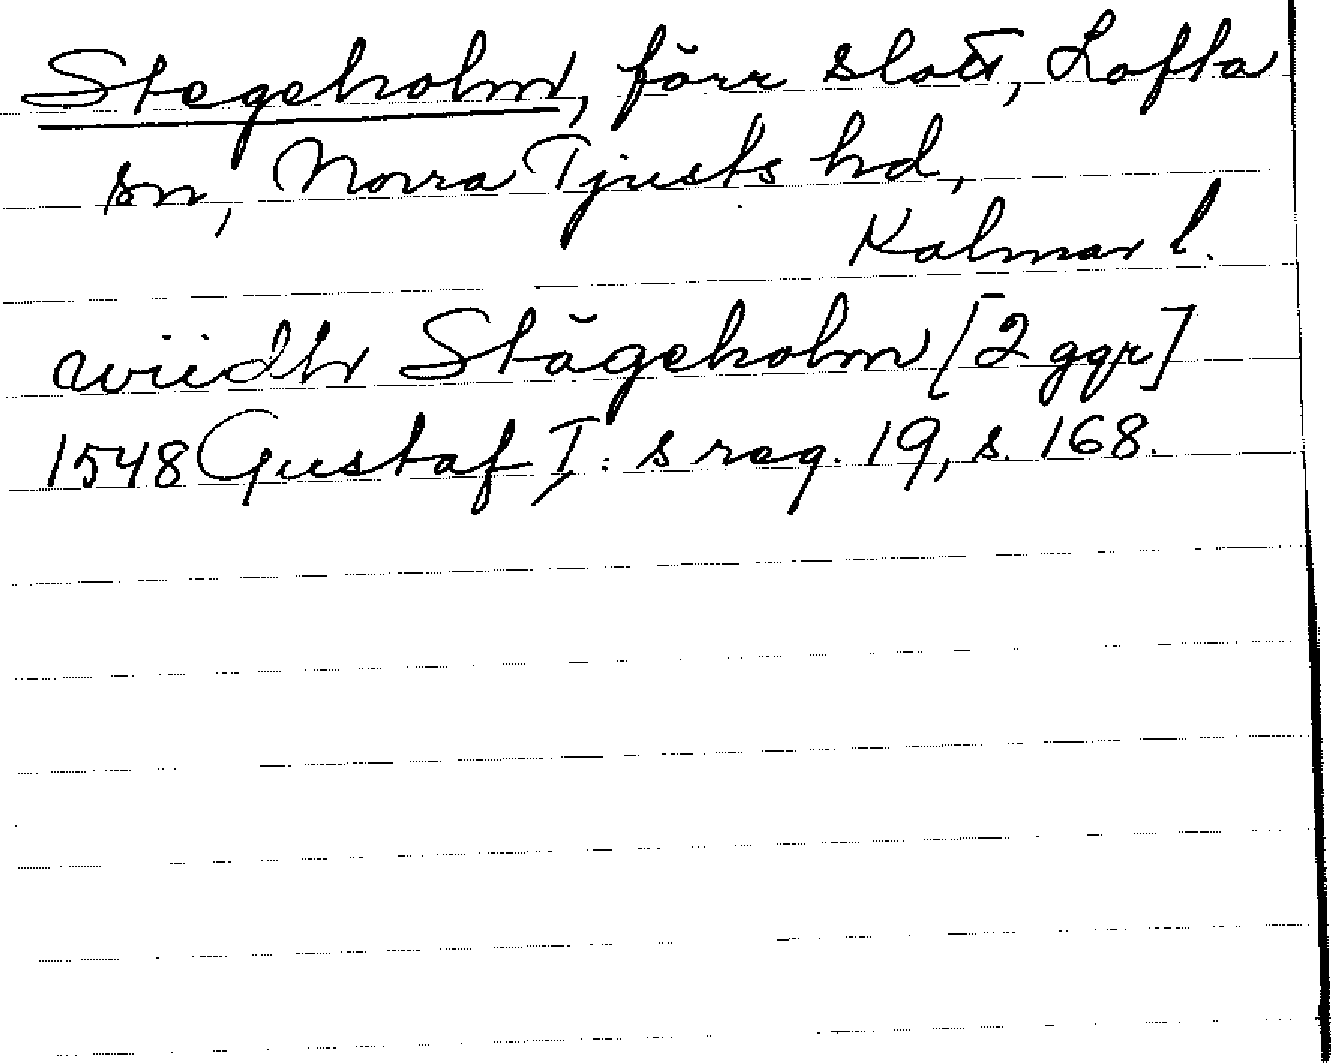 Stegeholm, förr slott, Lofta
sn, Norra Tjusts hd,
Kalmar l.
wiidhr Stägeholm [2 ggr]
1548 Gustaf I:s reg. 19, s. 168.